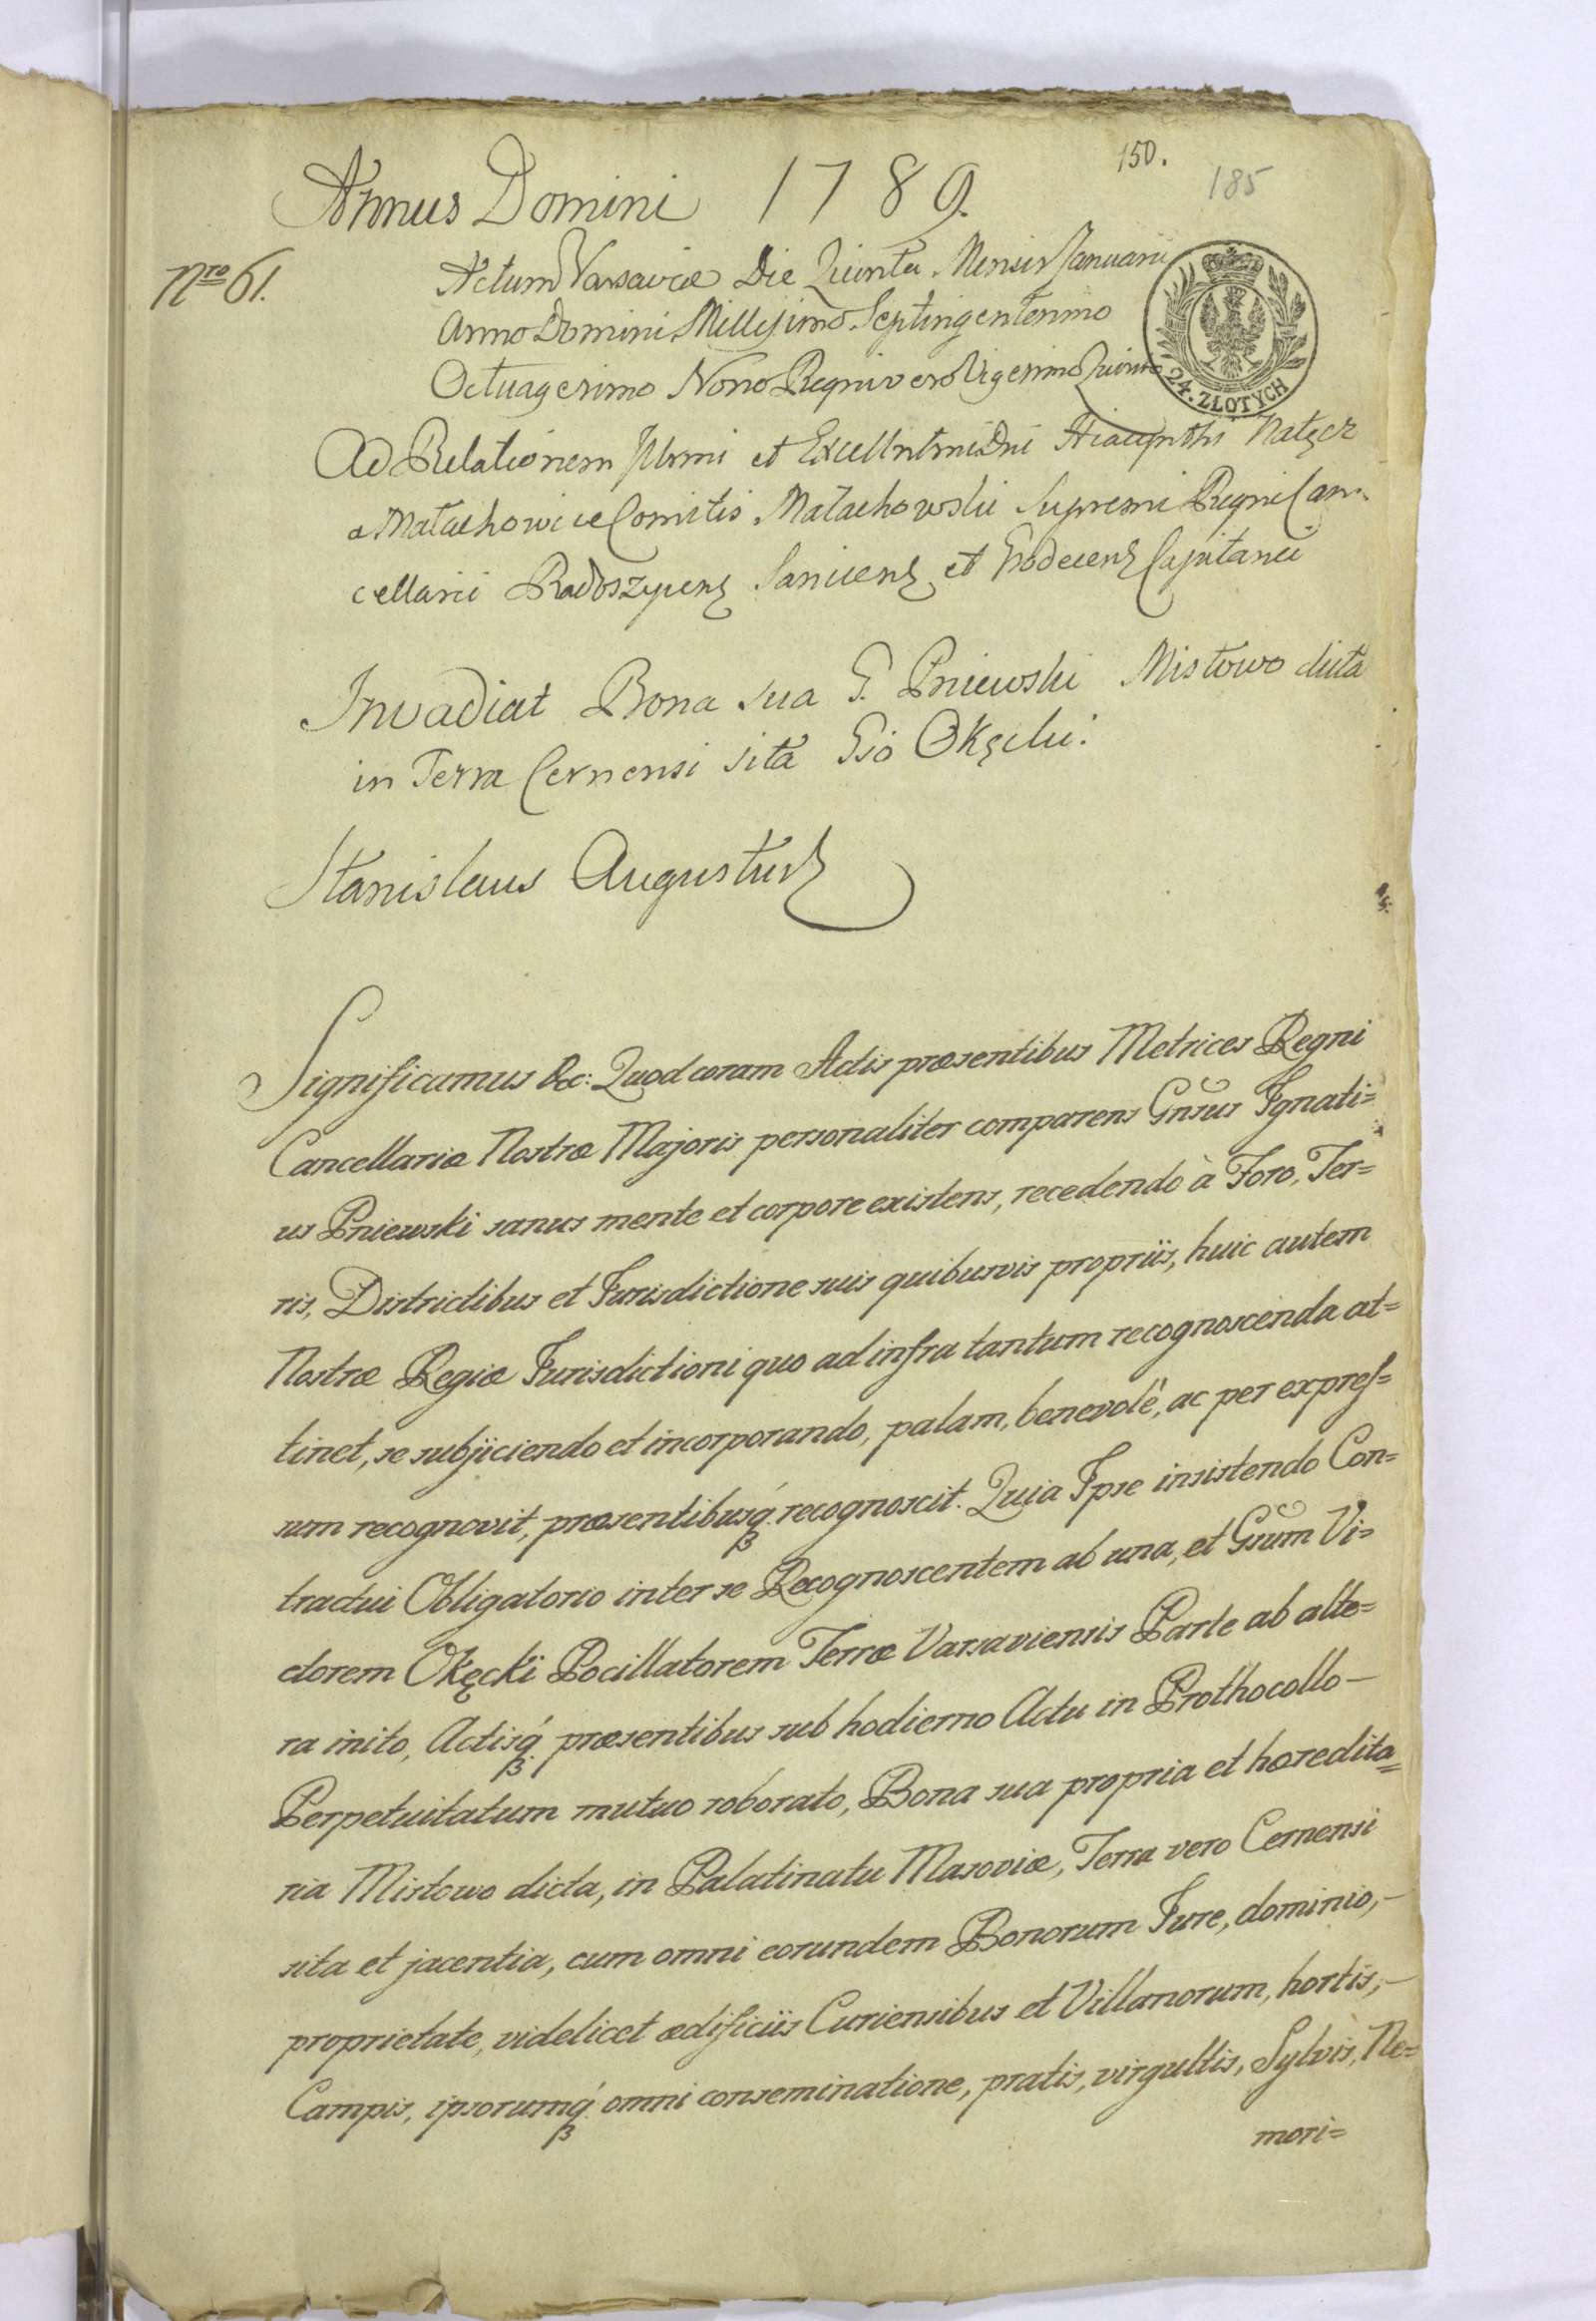 150.
185
Annus Domini 1789.
Nro 61.
Actum Varsaviæ Die Quinta Mensis Januarii
Anno Domini Millesimo Septingentesimo
Octuagesimo Nono Regni vero Vigesimo Quinto
24. ZŁOTYCH
Ad Relationem Illmi et Excellntmi Dni Hiacynthi Nałęcz
a Małachowice Comitis Małachowski Supremi Regni Can-
cellarii Radoszycens Sanicens et Grodecens Capitanei
Invadiat Bona sua G. Pniewski Mistowo dicta
in Terra Cernensi sita Gso Okęcki.
Stanislaus Augustus
Significamus &c: Quod coram Actis præsentibus Metrices Regni
Cancellariæ Nostræ Majoris personaliter comparens Gnsus Ignati=
us Pniewski sanus mente et corpore existens, recedendo à Foro, Ter=
ris, Districtibus et Jurisdictione suis quibusvis propriis, huic autem
Nostræ Regiæ Jurisdictioni quo ad infra tantum recognoscenda at=
tinet, se subjiciendo et incorporando, palam, benevolè, ac per expres=
sum recognovit, præsentibusq́ recognoscit. Quia Ipse insistendo Con=
tractui Obligatorio inter se Recognoscentem ab una, et Gsum Vi=
ctorem Okęcki Pocillatorem Terræ Varsaviensis Parte ab alte=
ra inito, Actisq́ præsentibus sub hodierno Actu in Prothocollo —
Perpetuitatum mutuo roborato, Bona sua propria et hæredita=
ria Mistowo dicta, in Palatinatu Masoviæ, Terra vero Cernensi
sita et jacentia, cum omni eorundem Bonorum Jure, dominio, —
proprietate, videlicet ædificiis Curiensibus et Villanorum, hortis, —
Campis, ipsorumq́ omni conseminatione, pratis, virgultis, Sylvis, Ne=
mori=